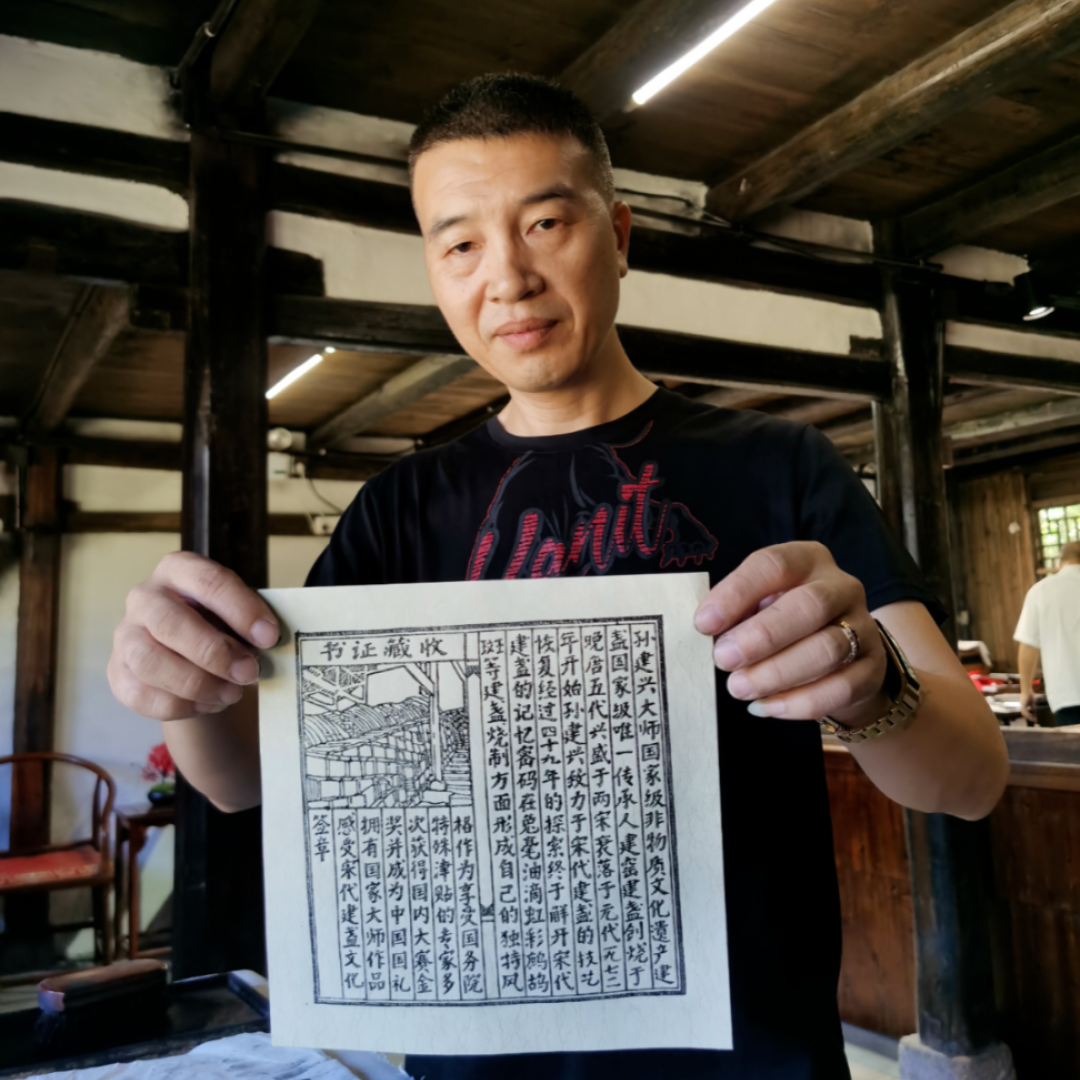 收藏证书
孙建兴大师国家级非物质文化遗产建
盏国家级唯一传承人建窑建盏创烧于
晚唐五代兴盛于两宋衰落于元代一九七二
年开始孙建兴致力于宋代建盏的技艺
恢复经过四十九年的探索终于解开宋代
建盏的记忆密码在兔毫油滴虹彩鹧鸪
斑等建盏烧制方面形成自己的独特风
格作为享受国务院
特殊津贴的专家多
次获得国内大赛金
奖并成为中国国礼
拥有国家大师作品
感受宋代建盏文化
签章